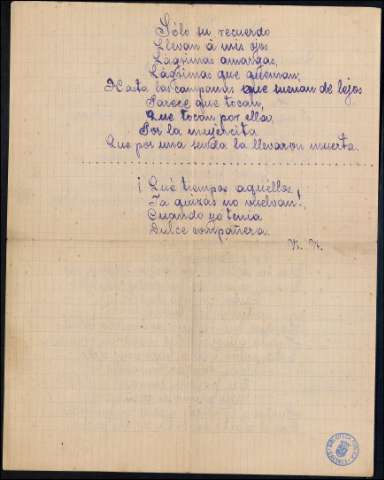 Sólo su recuerdo
Llevan á mis ojos
Lágrimas amargas,
Lágrimas que queman;
Hasta las campanas que suenan de lejos
Parece que tocan,
Que tocan por ella;
Por la mujercita
Que por una senda la llevaron muerta.
¡Qué tiempos aquéllos,
Ya quizás no vuelvan!
Cuando yo tenía
Dulce compañera.
N. N.
BIBLIOTECA